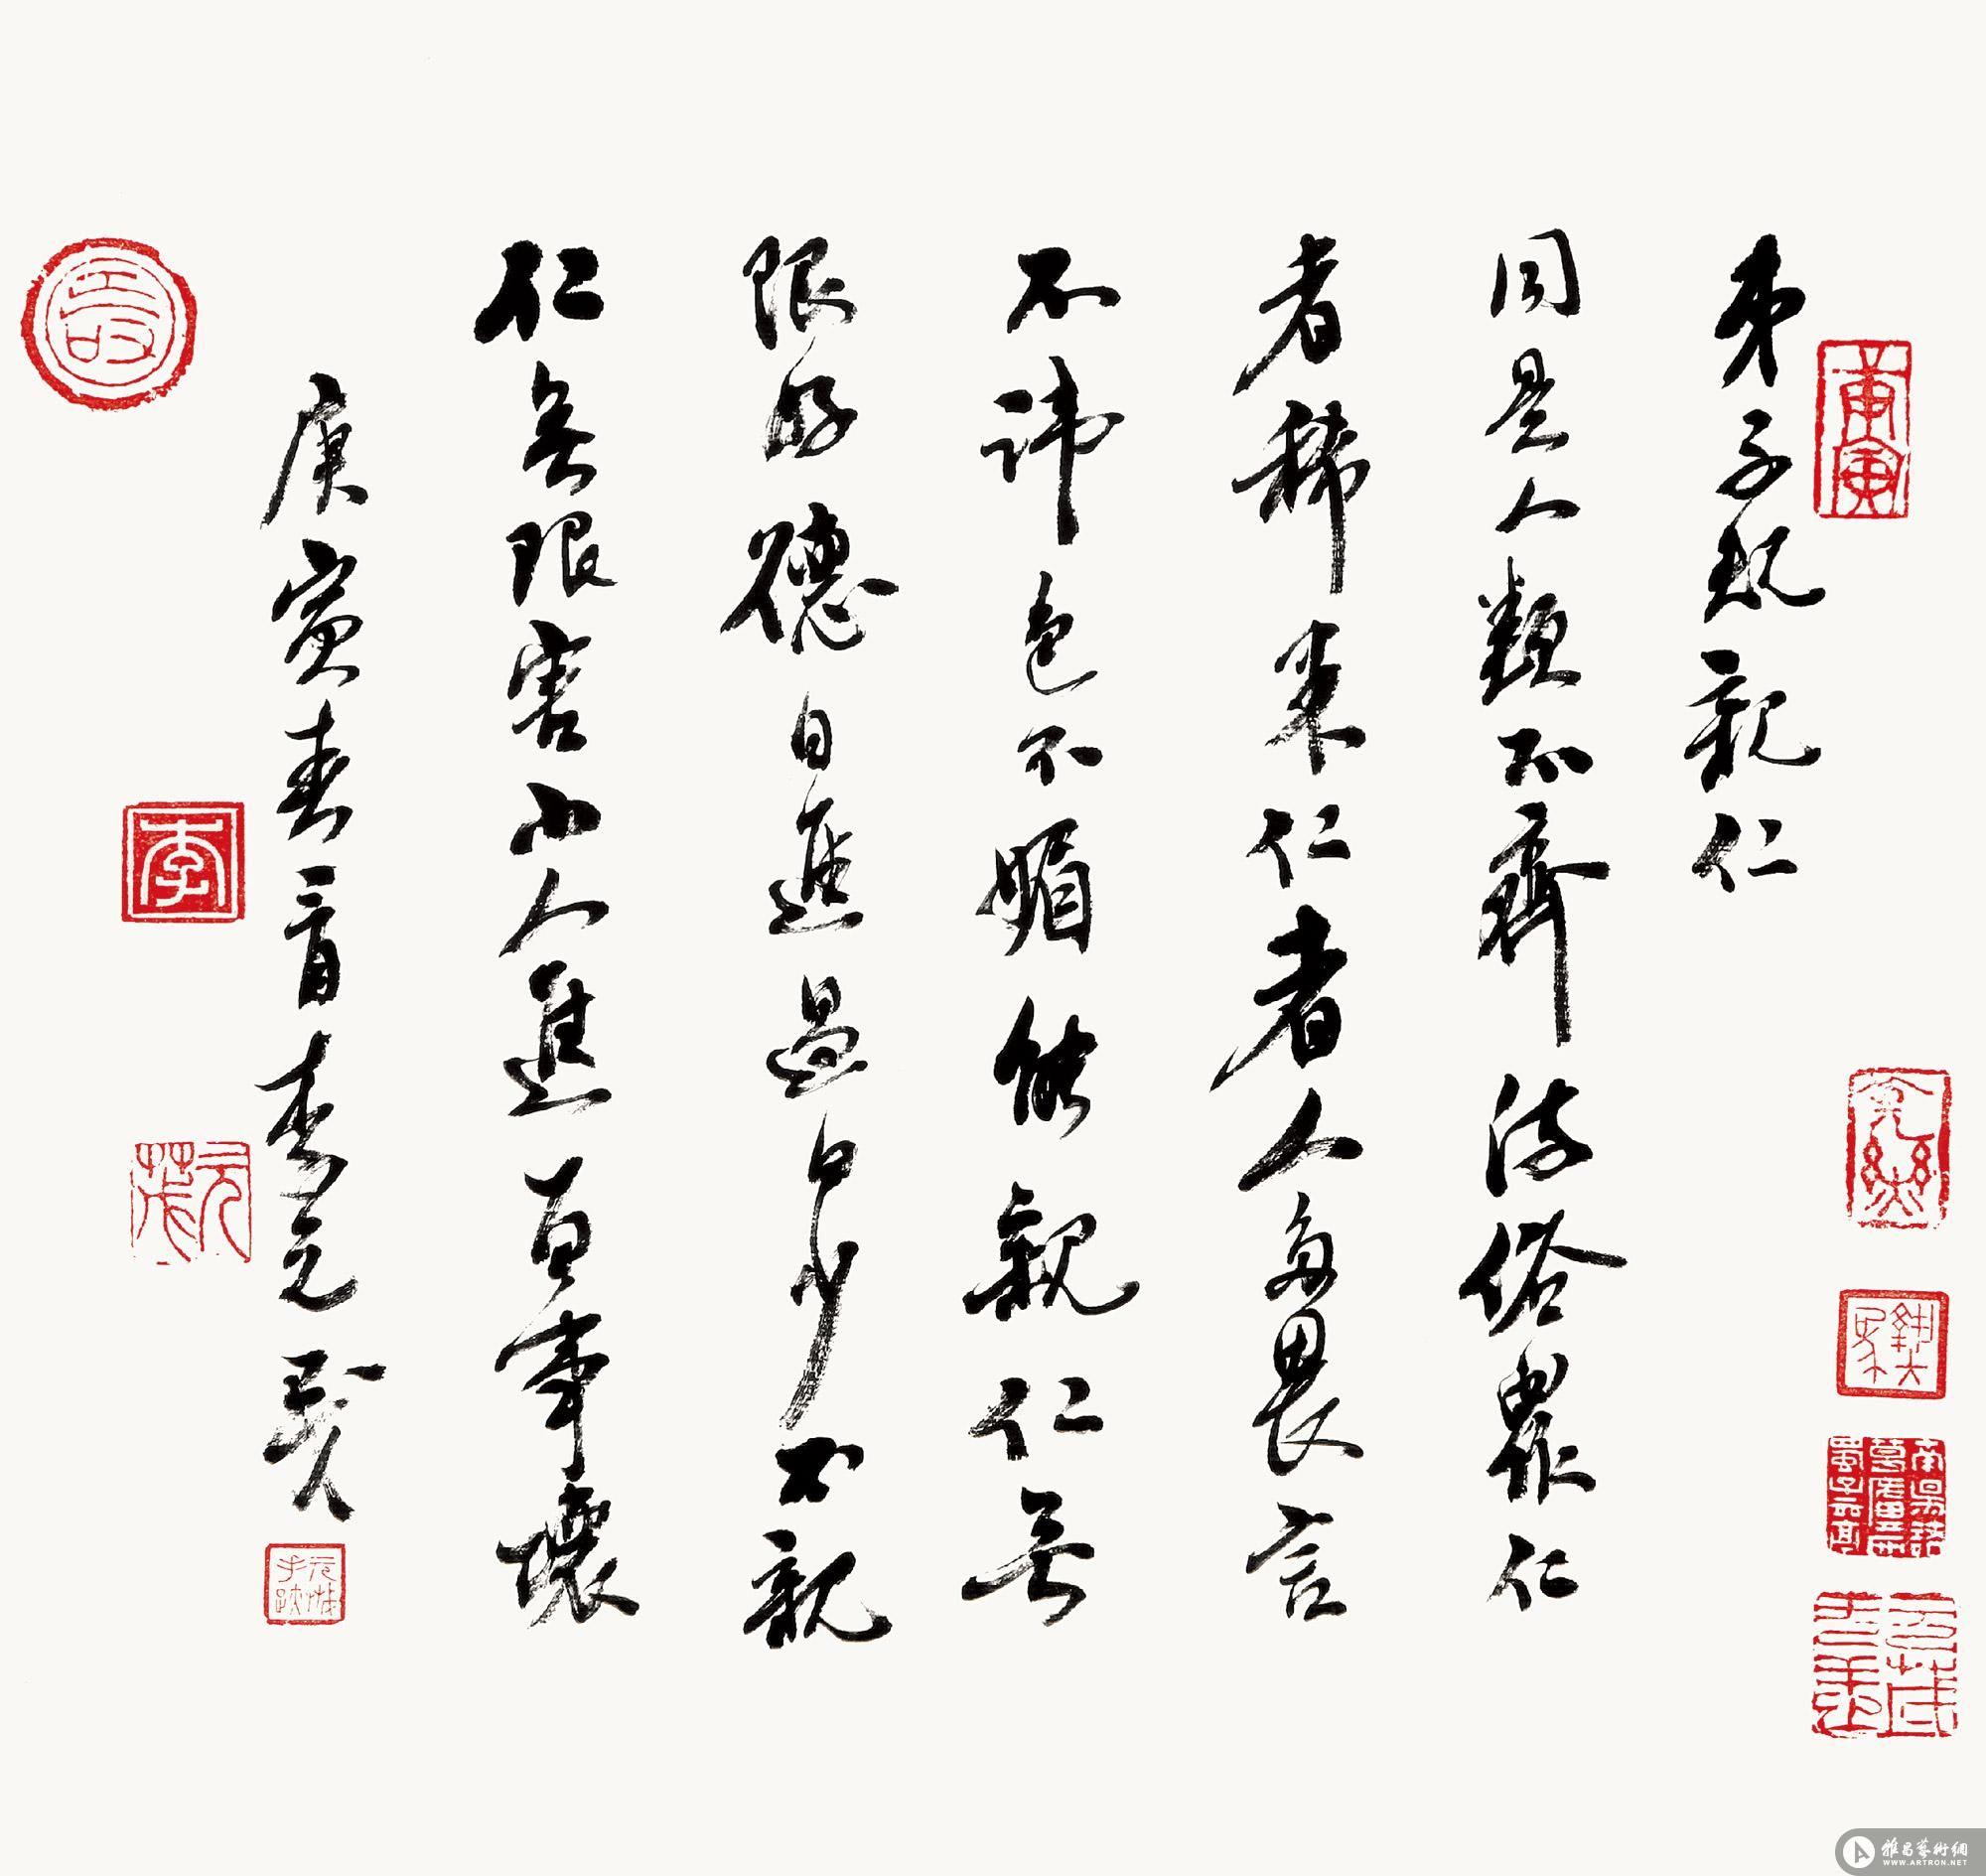 庚寅
弟子規親仁
同是人類不齊流俗眾仁
者稀果仁者人多畏言
不諱色不媚能親仁無
限好德日進過日少不親
仁無限害小人進百事壞
庚寅春三月李元茂
李
元茂
雅昌藝術網
WWW.ARTRON.NET